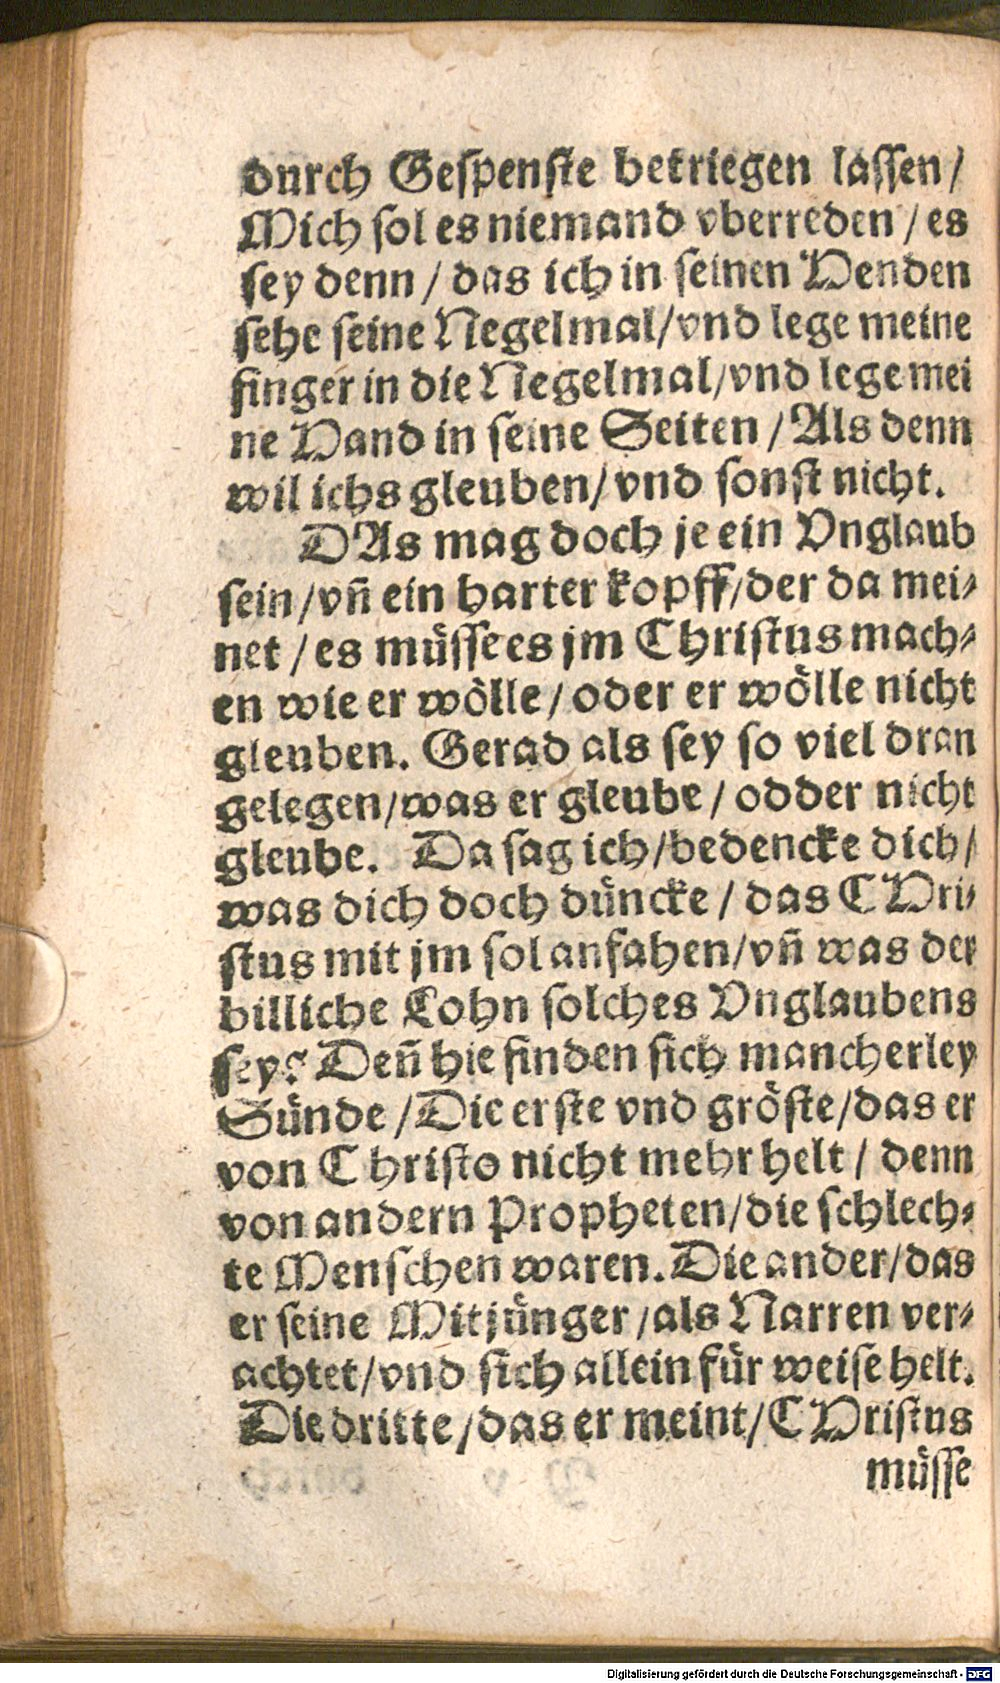 durch Geſpenſte betriegen laſſen/
Mich ſol es niemand vberreden / es
ſey denn / das ich in ſeinen Henden
ſehe ſeine Negelmal/vnd lege meine
finger in die Negelmal/vnd lege mei
ne Hand in ſeine Seiten / Als denn
wil ichs gleuben/ vnd ſonſt nicht.
DAs mag doch je ein Vnglaub
ſein/vñ ein harter kopff/der da mei⸗
net / es müſſe es jm Chriſtus mach⸗
en wie er wölle / oder er wölle nicht
gleuben. Gerad als ſey ſo viel dran
gelegen/was er gleube / odder nicht
gleube. Da ſag ich/bedencke dich/
was dich doch düncke / das CHri⸗
ſtus mit jm ſol anfahen/vñ was der
billiche Lohn ſolches Vnglaubens
ſey? Deñ hie finden ſich mancherley
Sünde / Die erſte vnd gröſte/das er
von Chriſto nicht mehr helt / denn
von andern Propheten/die ſchlech⸗
te Menſchen waren. Die ander/das
er ſeine Mitjünger/als Narren ver⸗
achtet/vnd ſich allein für weiſe helt.
Die dritte/das er meint/CHriſtus
müſſe
Digitalisierung gefördert durch die Deutsche Forschungsgemeinschaft - DFG